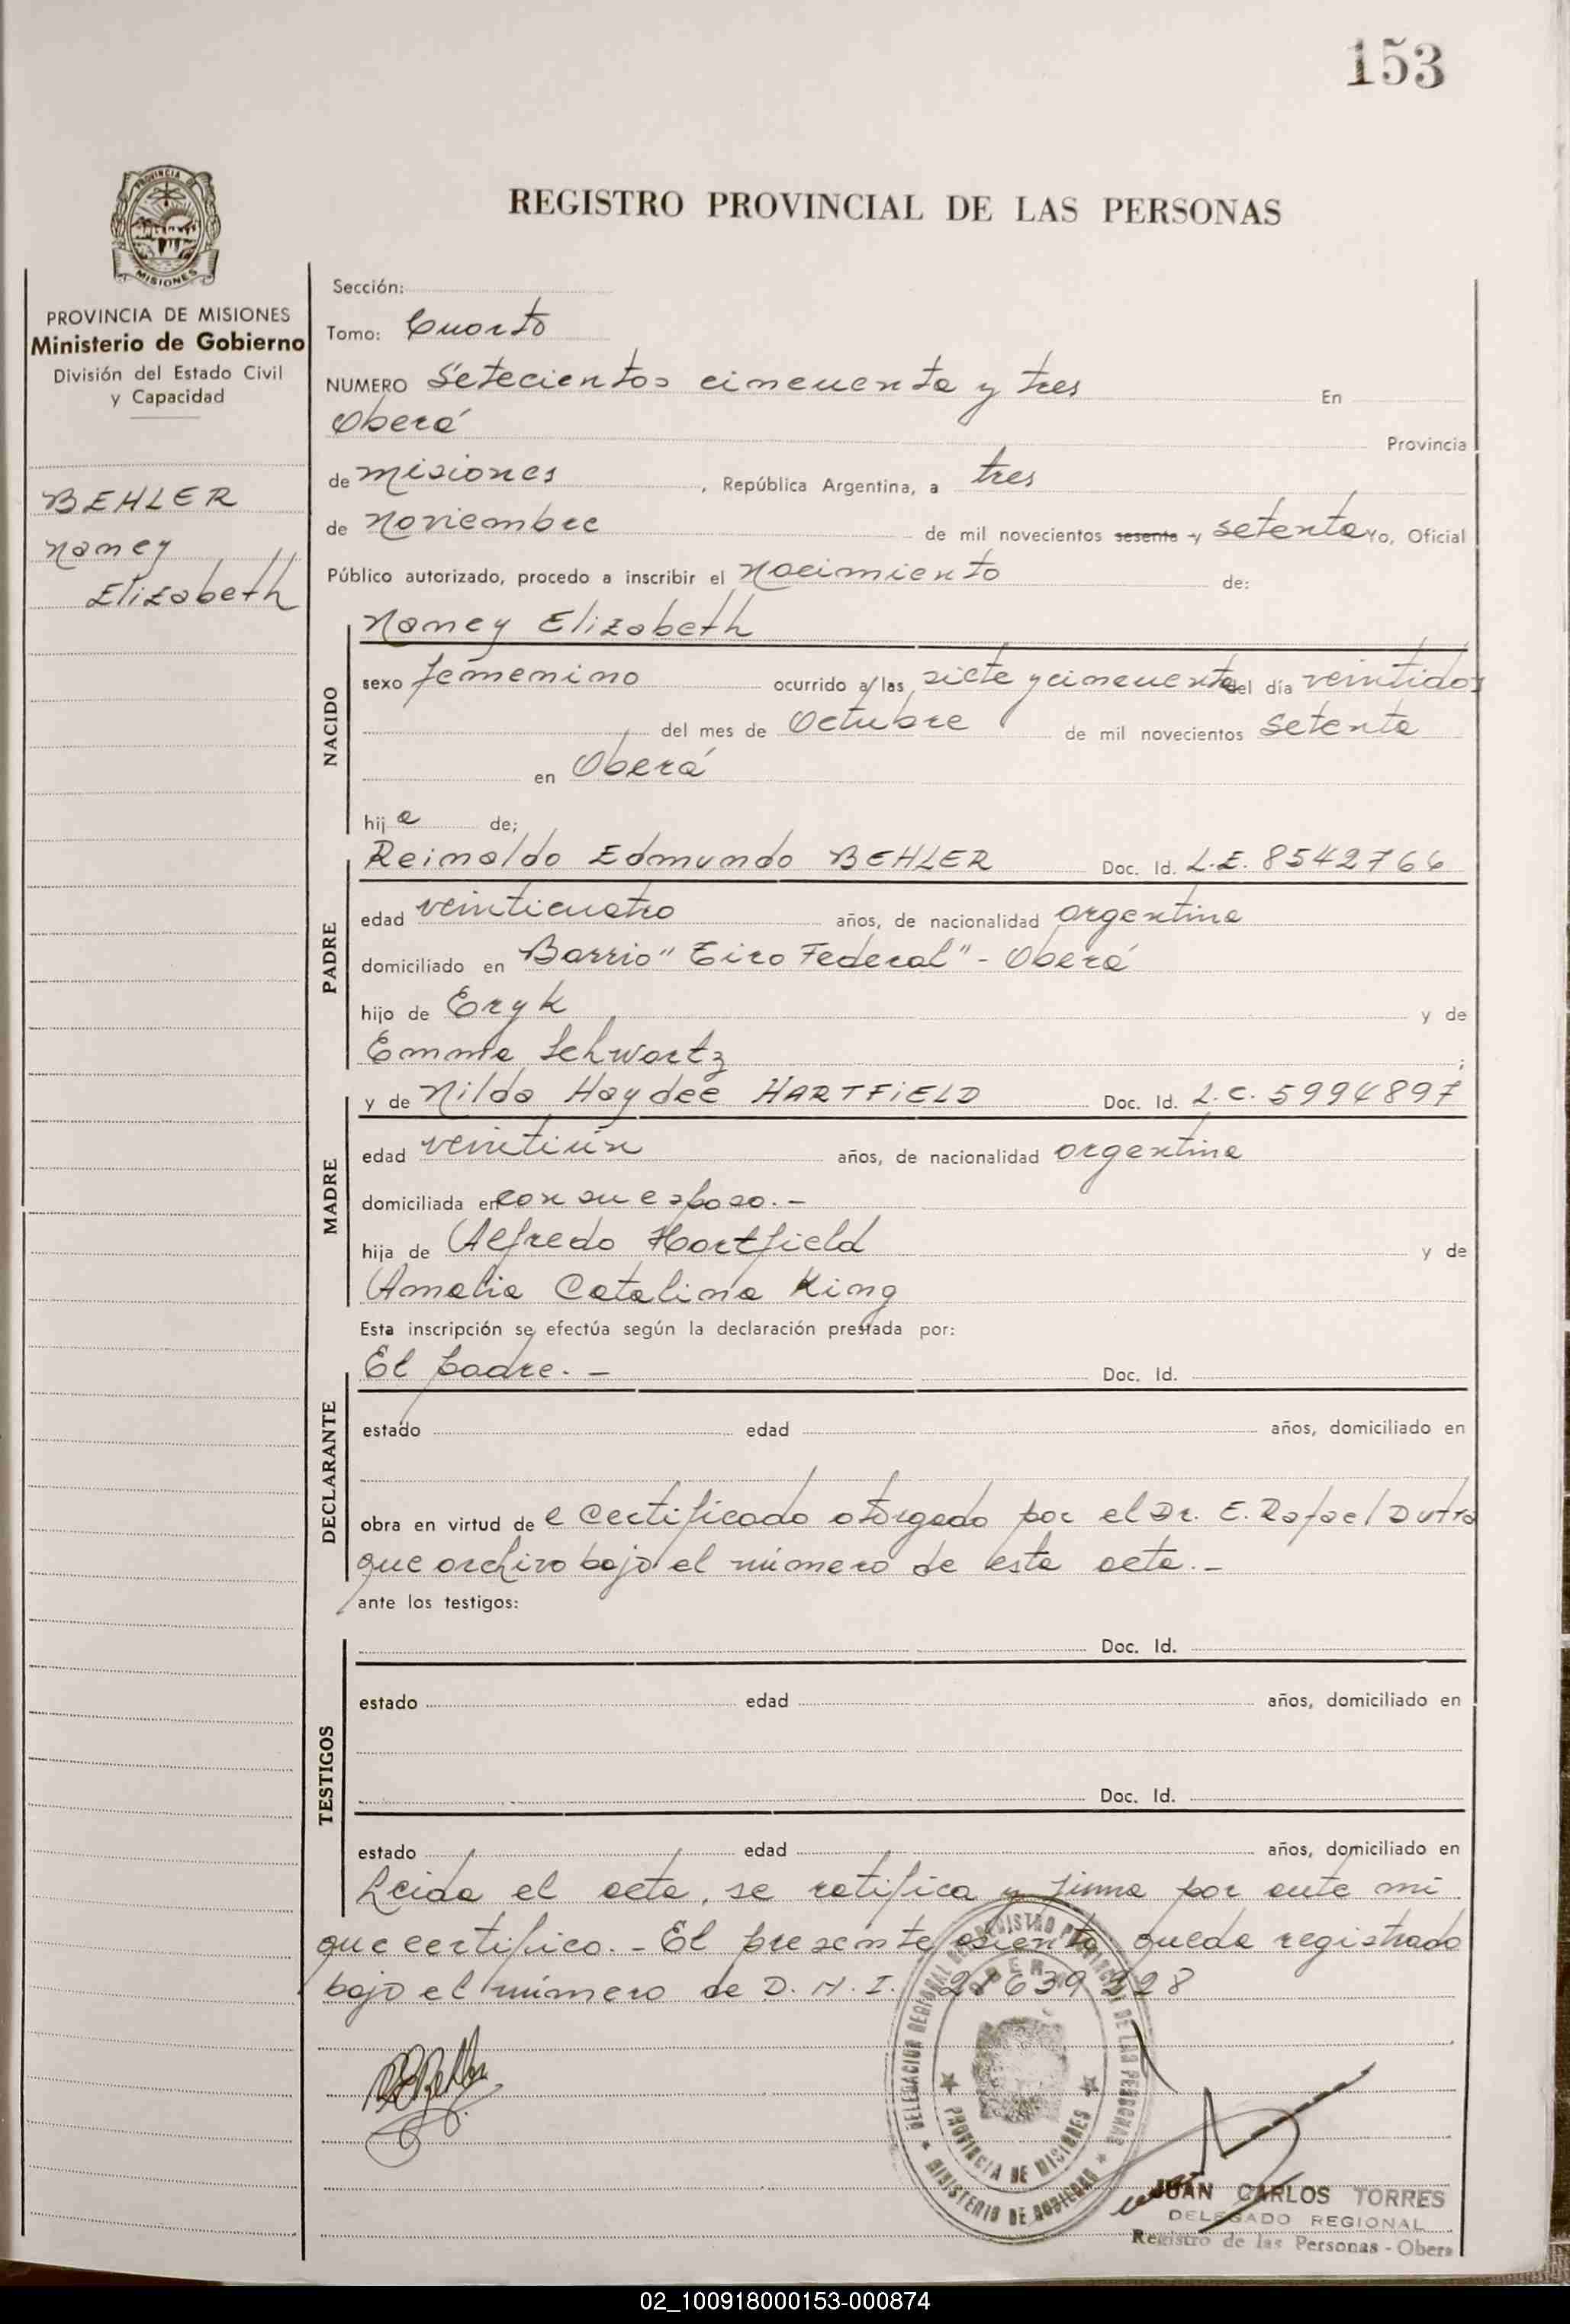 153
PROVINCIA DE
MISIONES
REGISTRO PROVINCIAL DE LAS PERSONAS
PROVINCIA DE MISIONES
Ministerio de Gobierno
División del Estado Civil
y Capacidad
BEHLER
Nancy
Elizabeth
Sección:
Tomo: Cuarto
NUMERO Setecientos cincuenta y tres En
Oberá Provincia
de Misiones, República Argentina, a tres
de Noviembre de mil novecientos sesenta y setenta Yo, Oficial
Público autorizado, procedo a inscribir el Nacimiento de:
NACIDO
Nancy Elizabeth
sexo femenino ocurrido a/las siete y cincuenta del día veintidos
del mes de Octubre de mil novecientos setenta
en Oberá
hij a de;
PADRE
Reinaldo Edmundo BEHLER Doc. Id. L.E. 8542766
edad veinticuatro años, de nacionalidad argentina
domiciliado en Barrio "Tiro Federal" - Oberá
hijo de Eryk y de
Emma Schwartz ;
MADRE
y de Nilda Haydee HARTFIELD Doc. Id. L.C. 5994897
edad veintiún años, de nacionalidad argentina
domiciliada en con su esposo. -
hija de Alfredo Hartfield y de
Amalia Catalina King
Esta inscripción se efectúa según la declaración prestada por:
DECLARANTE
El padre. - Doc. Id.
estado edad años, domiciliado en
obra en virtud de e certificado otorgado por el Dr. E. Rafael Dutra
que archivo bajo el número de esta acta. -
ante los testigos:
TESTIGOS
Doc. Id.
estado edad años, domiciliado en
Doc. Id.
estado edad años, domiciliado en
Leida el acta, se ratifica y firma por ante mi
que certifico. - El presente asiento queda registrado
bajo el número de D.N.I. 21639228
DELEGACION REGIONAL DEL REGISTRO PROVINCIAL DE LAS PERSONAS
OBERA
PROVINCIA DE MISIONES
MINISTERIO DE GOBIERNO
JUAN CARLOS TORRES
DELEGADO REGIONAL
Registro de las Personas - Obera
02_100918000153-000874